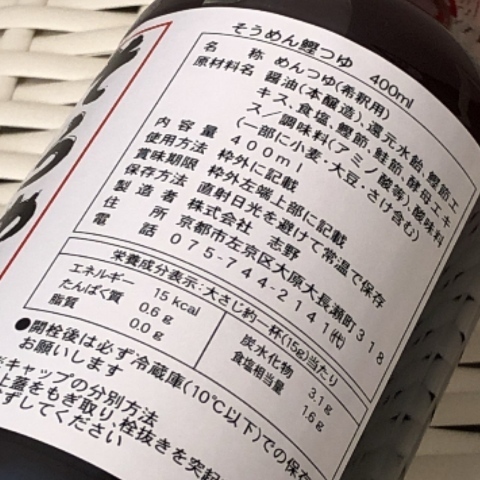 そうめん鰹つゆ 400ml
名称 めんつゆ(希釈用)
原材料名 醤油(本醸造)、還元水飴、鰹節エ
キス、食塩、鰹節、鮭節、酵母エキ
ス/調味料(アミノ酸等)、酸味料
(一部に小麦・大豆・さけ含む)
内容量 400ml
使用方法 枠外に記載
賞味期限 枠外左端上部に記載
保存方法 直射日光を避けて常温で保存
製造者 株式会社 志野
住所 京都市左京区大原大長瀬町318
電話 075-744-2141(代)
栄養成分表示:大さじ約一杯(15g)当たり
エネルギー 15 kcal
たんぱく質 0.6 g
脂質 0.0 g
炭水化物 3.1g
食塩相当量 1.6g
●開栓後は必ず冷蔵庫(10℃以下)での保存
お願いします
※キャップの分別方法
上蓋をもぎ取り、栓抜きを突起
ずしてください